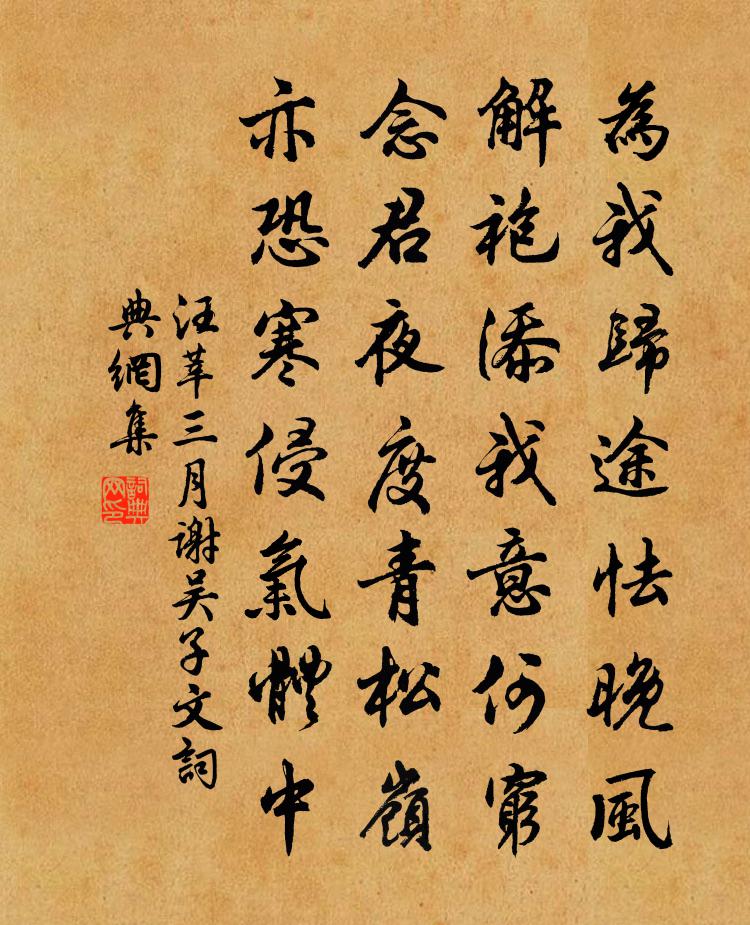 為我歸途怯晚風
解袍添我意何窮
念君夜度青松嶺
亦恐寒侵氣體中
汪莘三月謝吴子文詞
典網集
詞典
网印